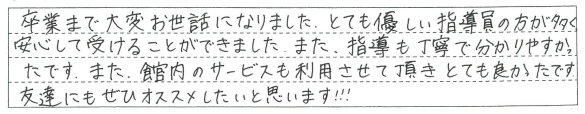 卒業まで大変お世話になりました。とても優しい指導員の方が多く
安心して受けることができました。また、指導も丁寧で分かりやすかっ
たです。また、館内のサービスも利用させて頂きとても良かったです
友達にもぜひオススメしたいと思います!!!